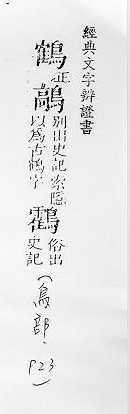 經典文字辨證書
鶴正鶮別出史記索隱以為古鶴字鸖俗出史記(鳥部.P23)